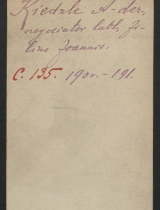 Kiedzle A-der,
negociator labh, fi-
lius Joannis.
C. 135. 190v.-191.